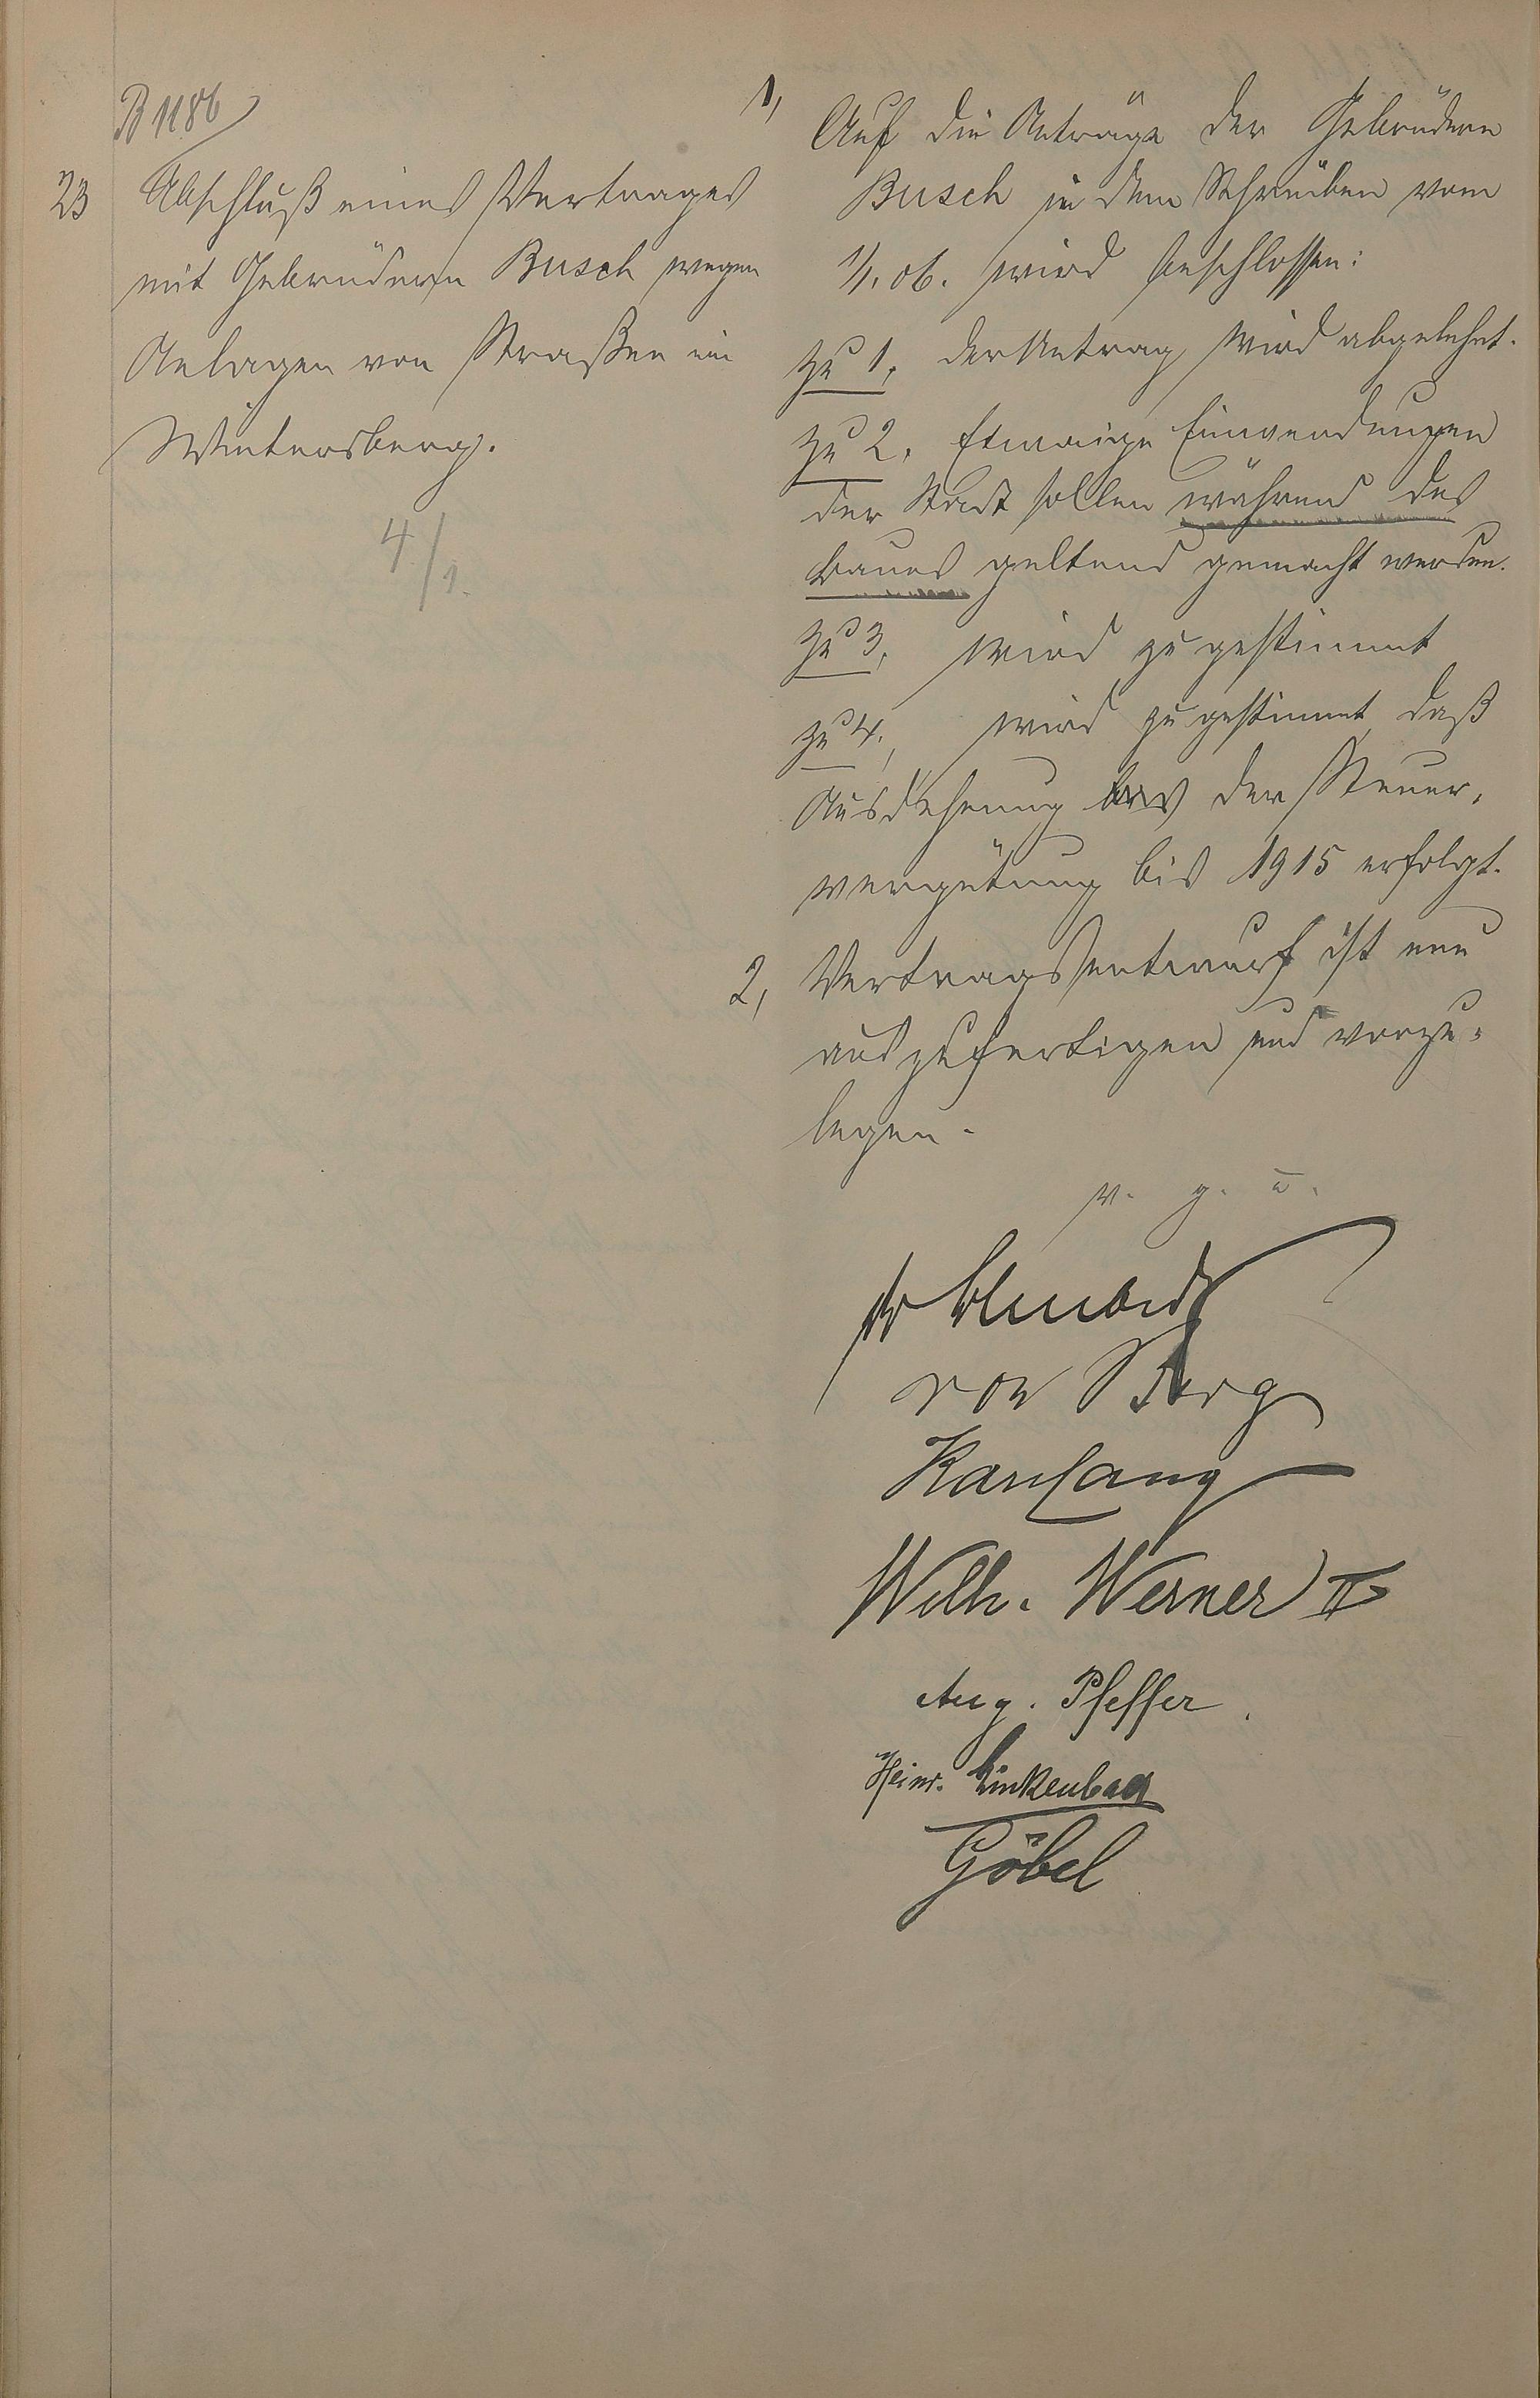 B 1186
23 Abschluß eines Vertrages
mit Gebrüdern Busch wegen
Anlagen von Straßen im
Wintersberg.
4/1.
1, Auf die Anträge der Gebrüdern
Busch in dem Schreiben vom
1/1. 06. wird beschlossen:
zu 1, der Antrag wird abgelehnt.
zu 2, Etwaige Einwendungen
der Stadt sollen während des
Baues geltend gemacht werden.
zu 3, wird zugestimmt
zu 4., wird zugestimmt daß
Ausdehnung der Steuer-
vergütung bis 1915 erfolgt.
2, Vertragsentwurf ist neu
auszufertigen und vorzu-
legen.
v. g. u.
von
Karl Lang
Wilh. Werner II
Aug. Pfeffer.
Heinr. Linkenbach
Göbel